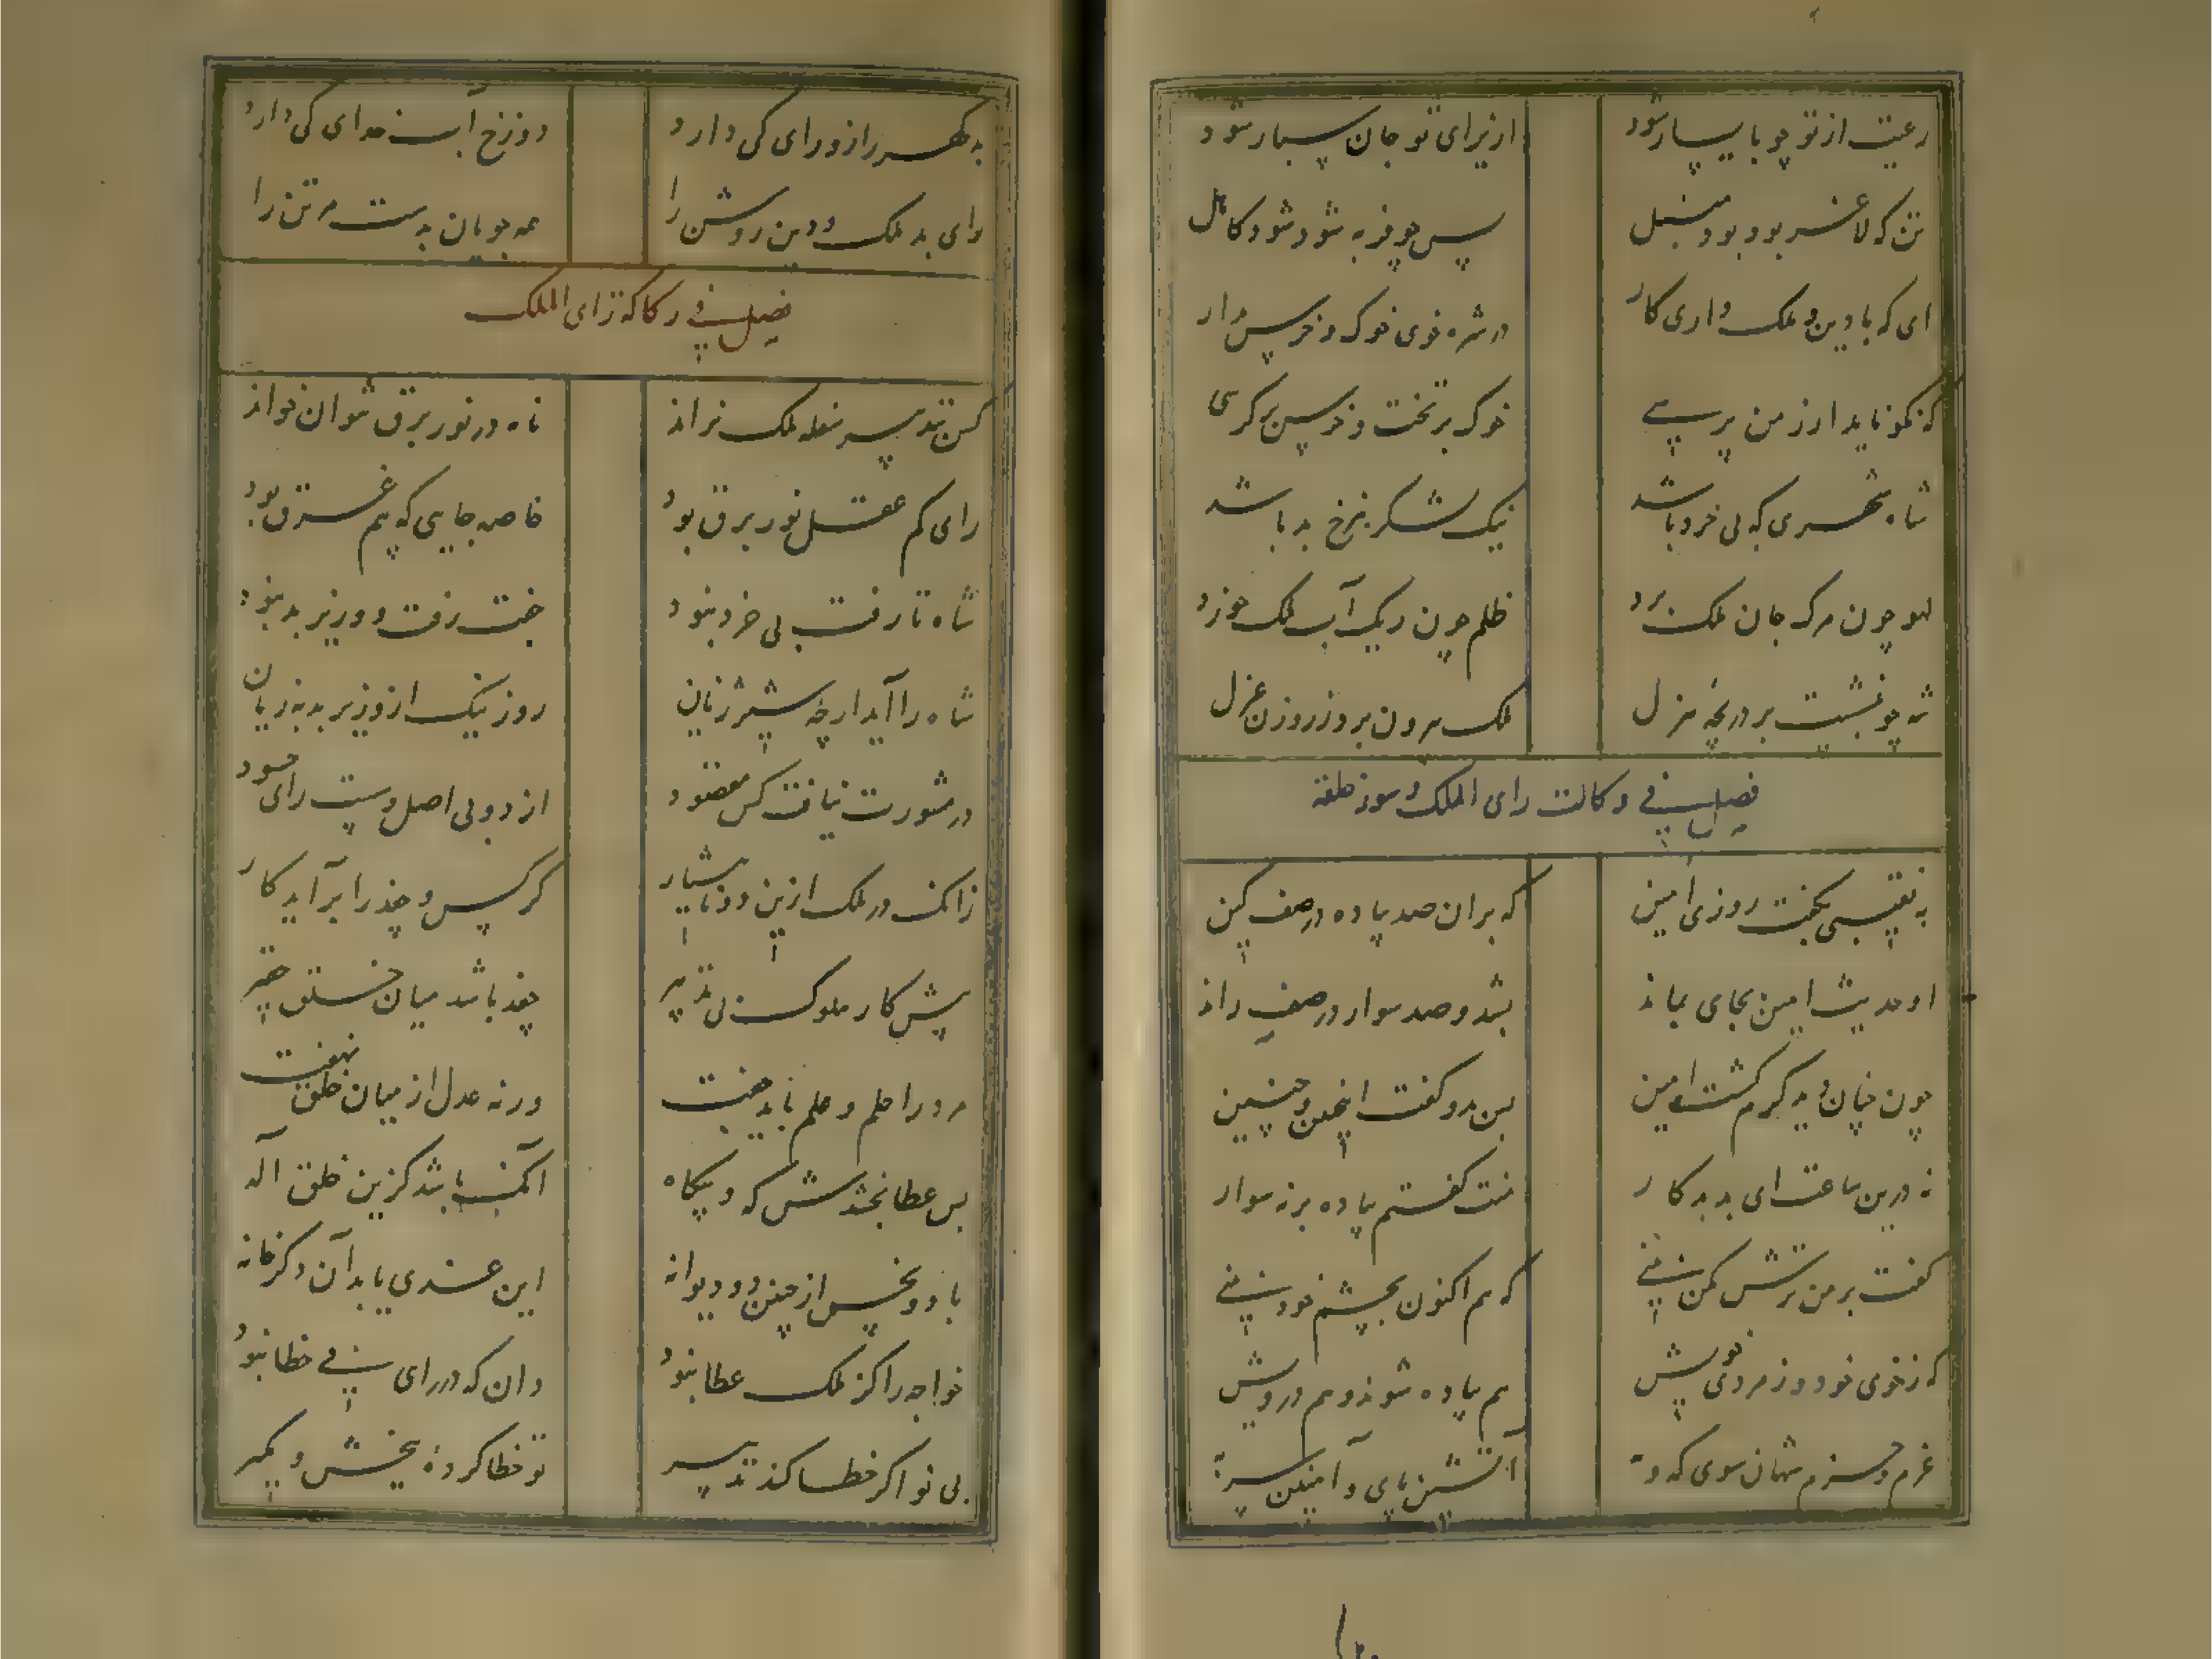 رعیت از تو چو با یسار شود از برای تو جان سپار شود
تن که لاغر بود بود منبل پس چو فربه شود شود کاهل
ای که با دین و ملک داری کار در شره خوی خوک و خرس مدار
که نکو ناید ار ز من پرسی خوک بر تخت و خرس بر کرسی
شاه شهری که بی خرد باشد نیک لشکر بنرخ بد باشد
لهو چون مرک جان ملک برد ظلم چون ریک آب ملک خورد
شه چو بنشست بر دریچه هزل ملک بیرون برد ز روزن عزل
فصل فی وکالت رای الملک و سوء خلقه
به نقیبی بکفت روزی امین که بران صد پیاده در صف کین
او حدیث امین بجای بماند بشد و صد سوار در صف راند
چون چنان دید کرم کشت امین پس بدو کفت اینچنین و چنین
نه درین ساعت ای بد بد کار منت کفتم پیاده بر نه سوار
کفت بر من ترش مکن بینی که هم اکنون بچشم خود بینی
که ز خوی خود و ز مردمی خویش هم پیاده شوند و هم درویش
عزم و حزم شهان سوی که و مه آتشین پای و آهنین سر به
به کهر راز و رای کی دارد دوزخ آب خدای کی دارد
رای بد ملک و دین روشن را همه چونان بدست مر تن را
فصل فی رکاکة رای الملک
کس بتدبیر سفله ملک نراند نامه در نور برق نتوان خواند
رای کم عقل نور برق بود خاصه جایی که بیم غرق بود
شاه تا رفت بی خرد نبود جفت رفت و وزیر بد نبود
شاه را آید ار چه شیر ژیان روز نیک از وزیر بد بزیان
در مشورت نیافت کس مقصود از دو بی اصل و سست رای حسود
زانک در ملک ازین دو ناهشیار کرکس و جغد را برآید کار
پیش کار ملوک بی تدبیر جغد باشد میان خلق حقیر
مرد را حلم و علم باید جفت ورنه عدل از میان خلق نهفت
بس عطا بخشدش که و بیکاه آنکسی باشد کزین خلق اله
یا دو بخس از چنین دو دیوانه این عندی یابد آن دکر خانه
خواجه را کز ملک عطا نبود دان که در رای بی خطا نبود
بی نوا کر خطا کند تدبیر تو خطا کرده ببخش و مکیر